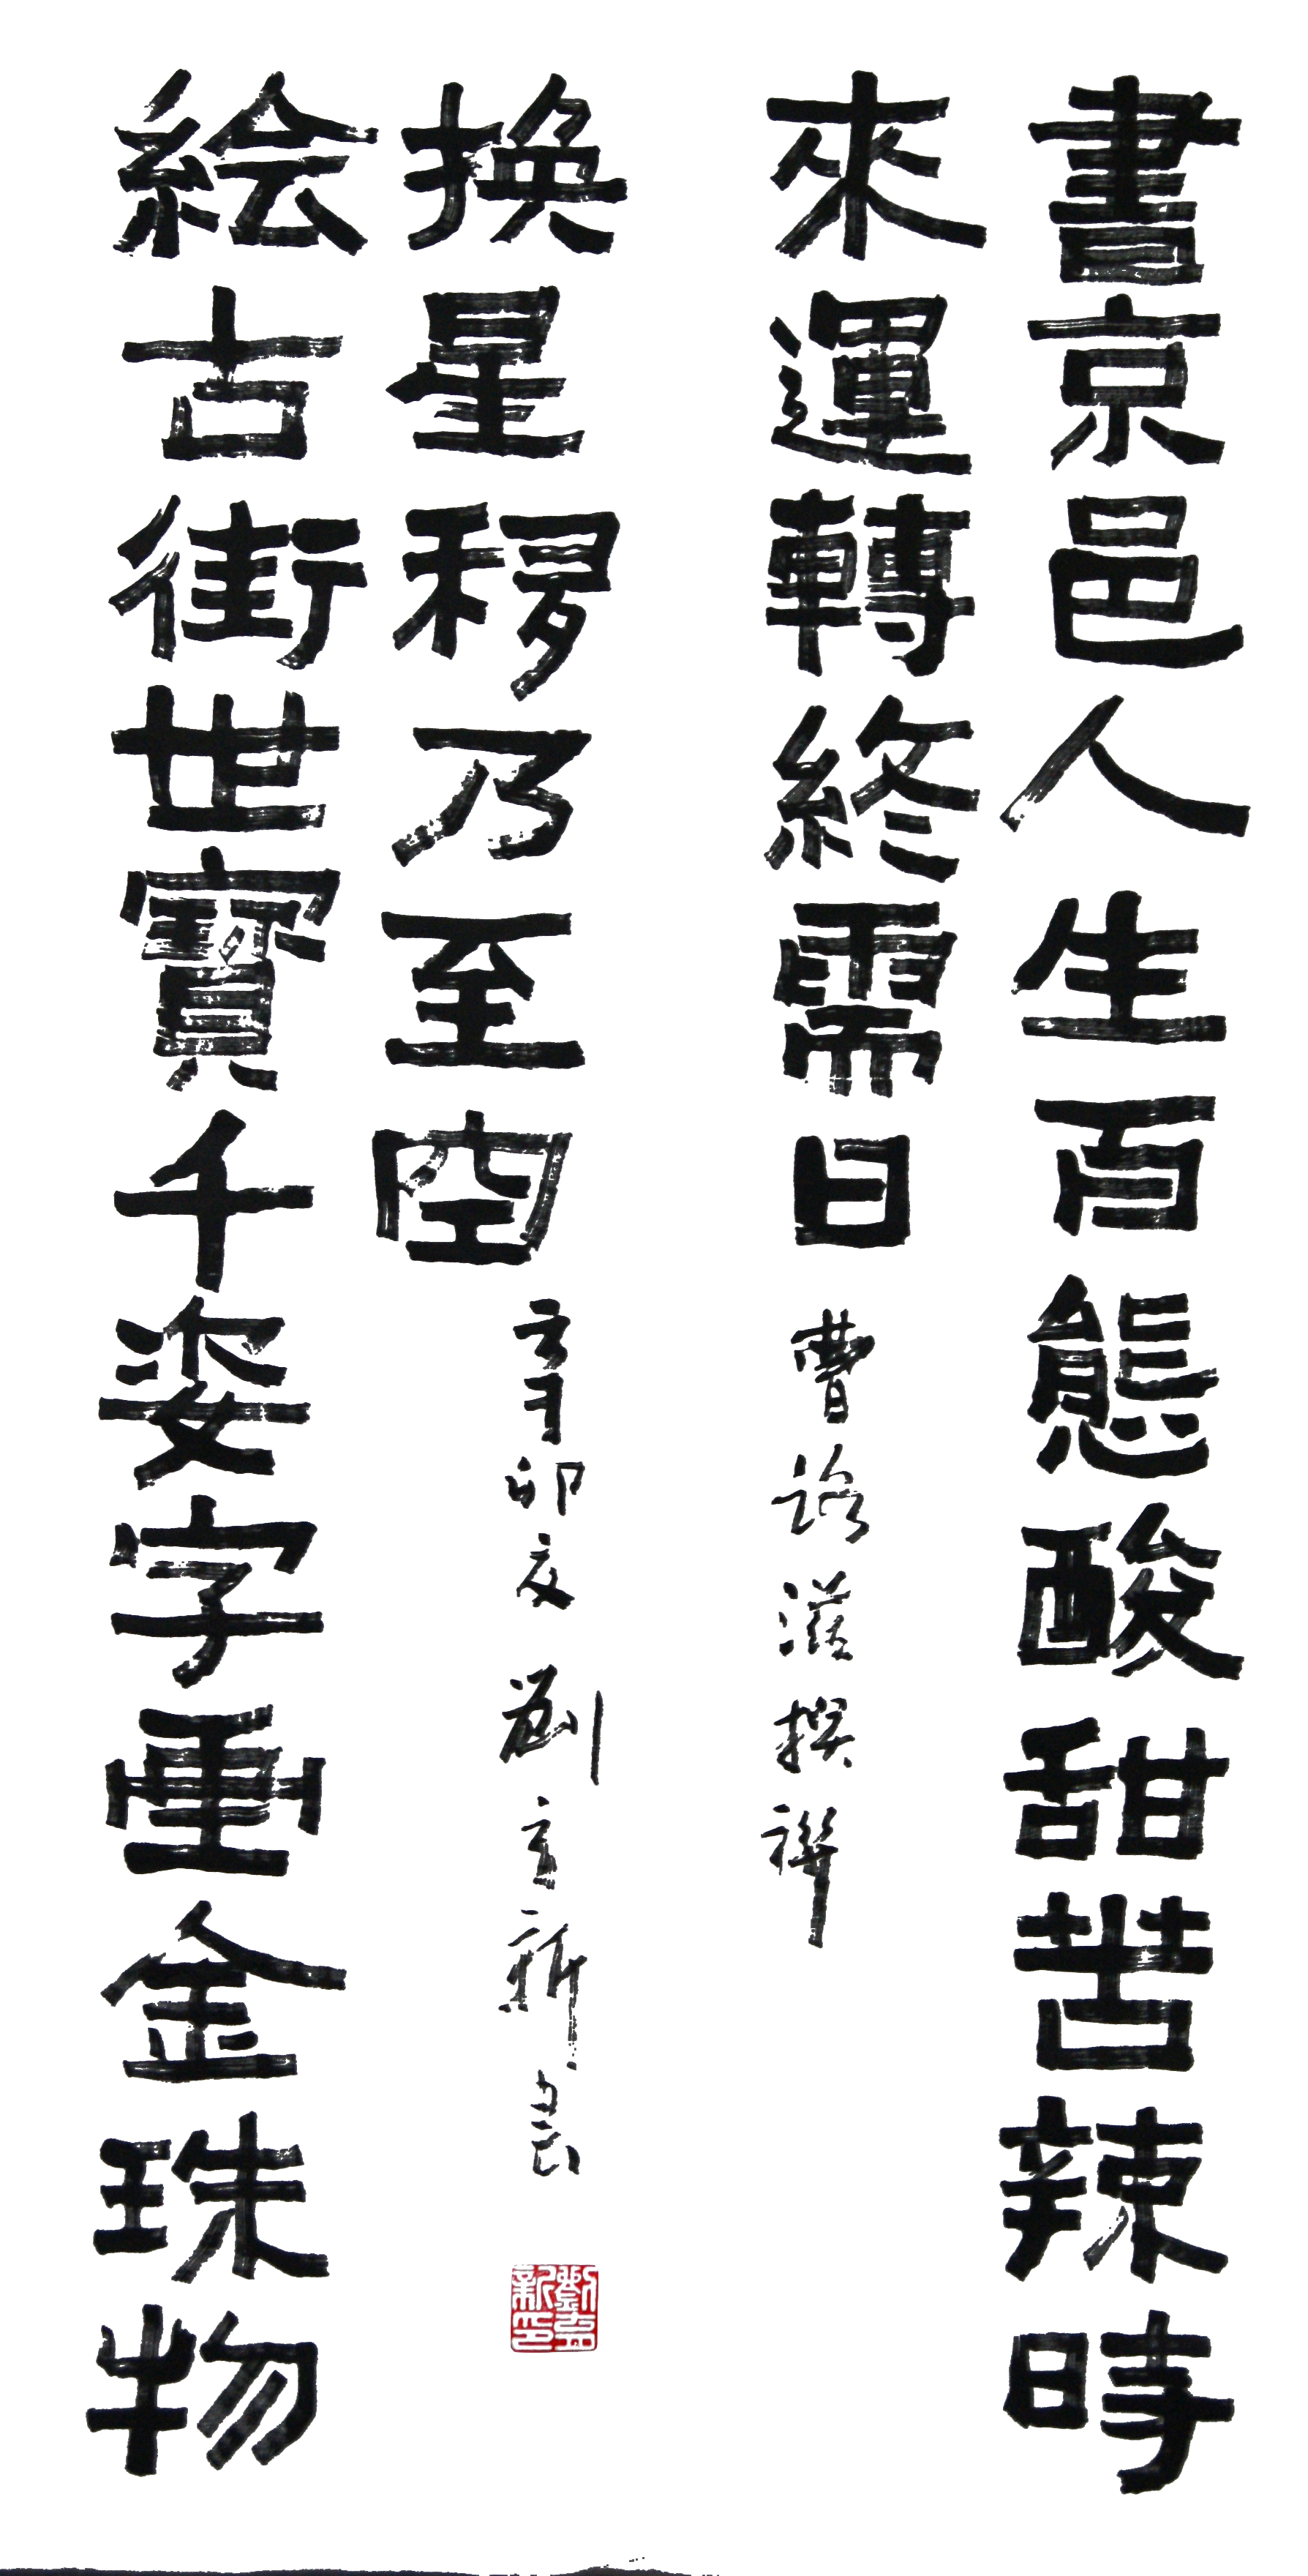 書京邑人生百態酸甜苦辣時
來運轉終需日 曹滋撰聯
絵古街世寶千姿字畫金珠物
換星移乃至空 辛卯夏 劉新書